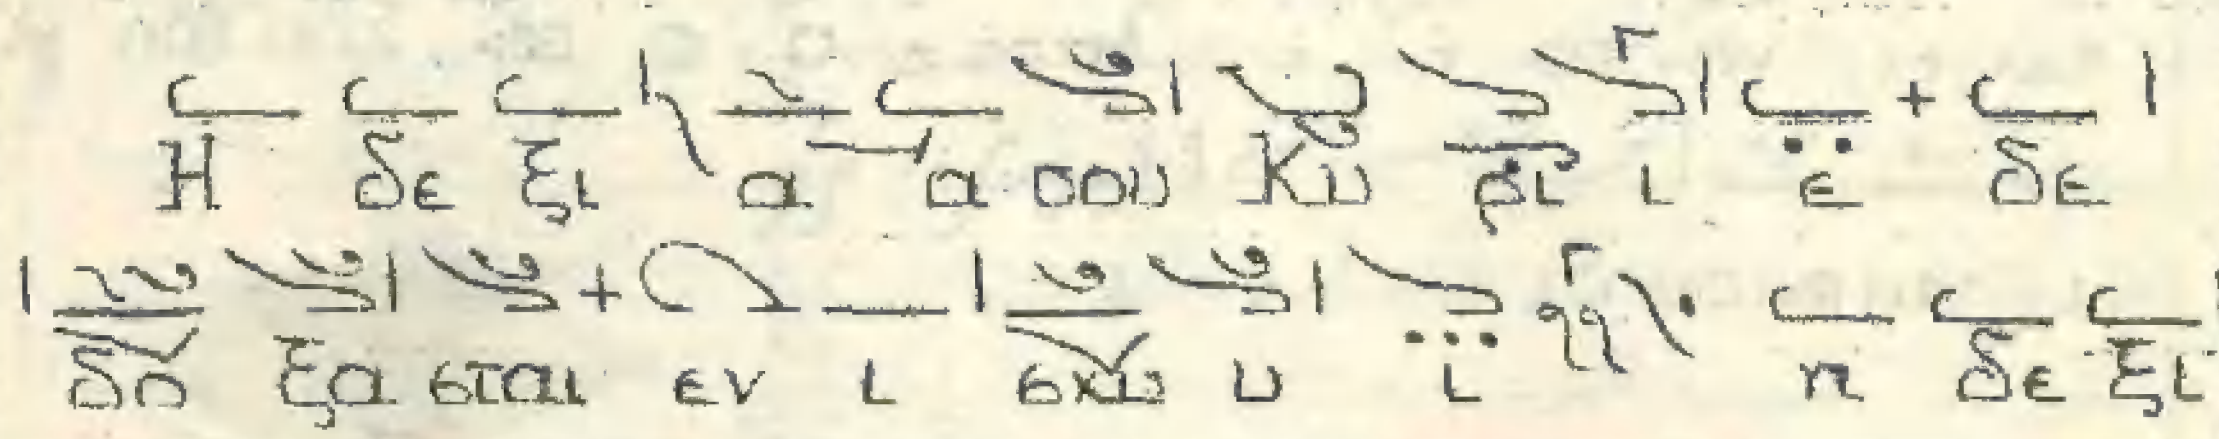 Η δε ξι α α σου Κυ ρι ι ε δε
δο ξα σται εν ι σχυ υ ι η δε ξι